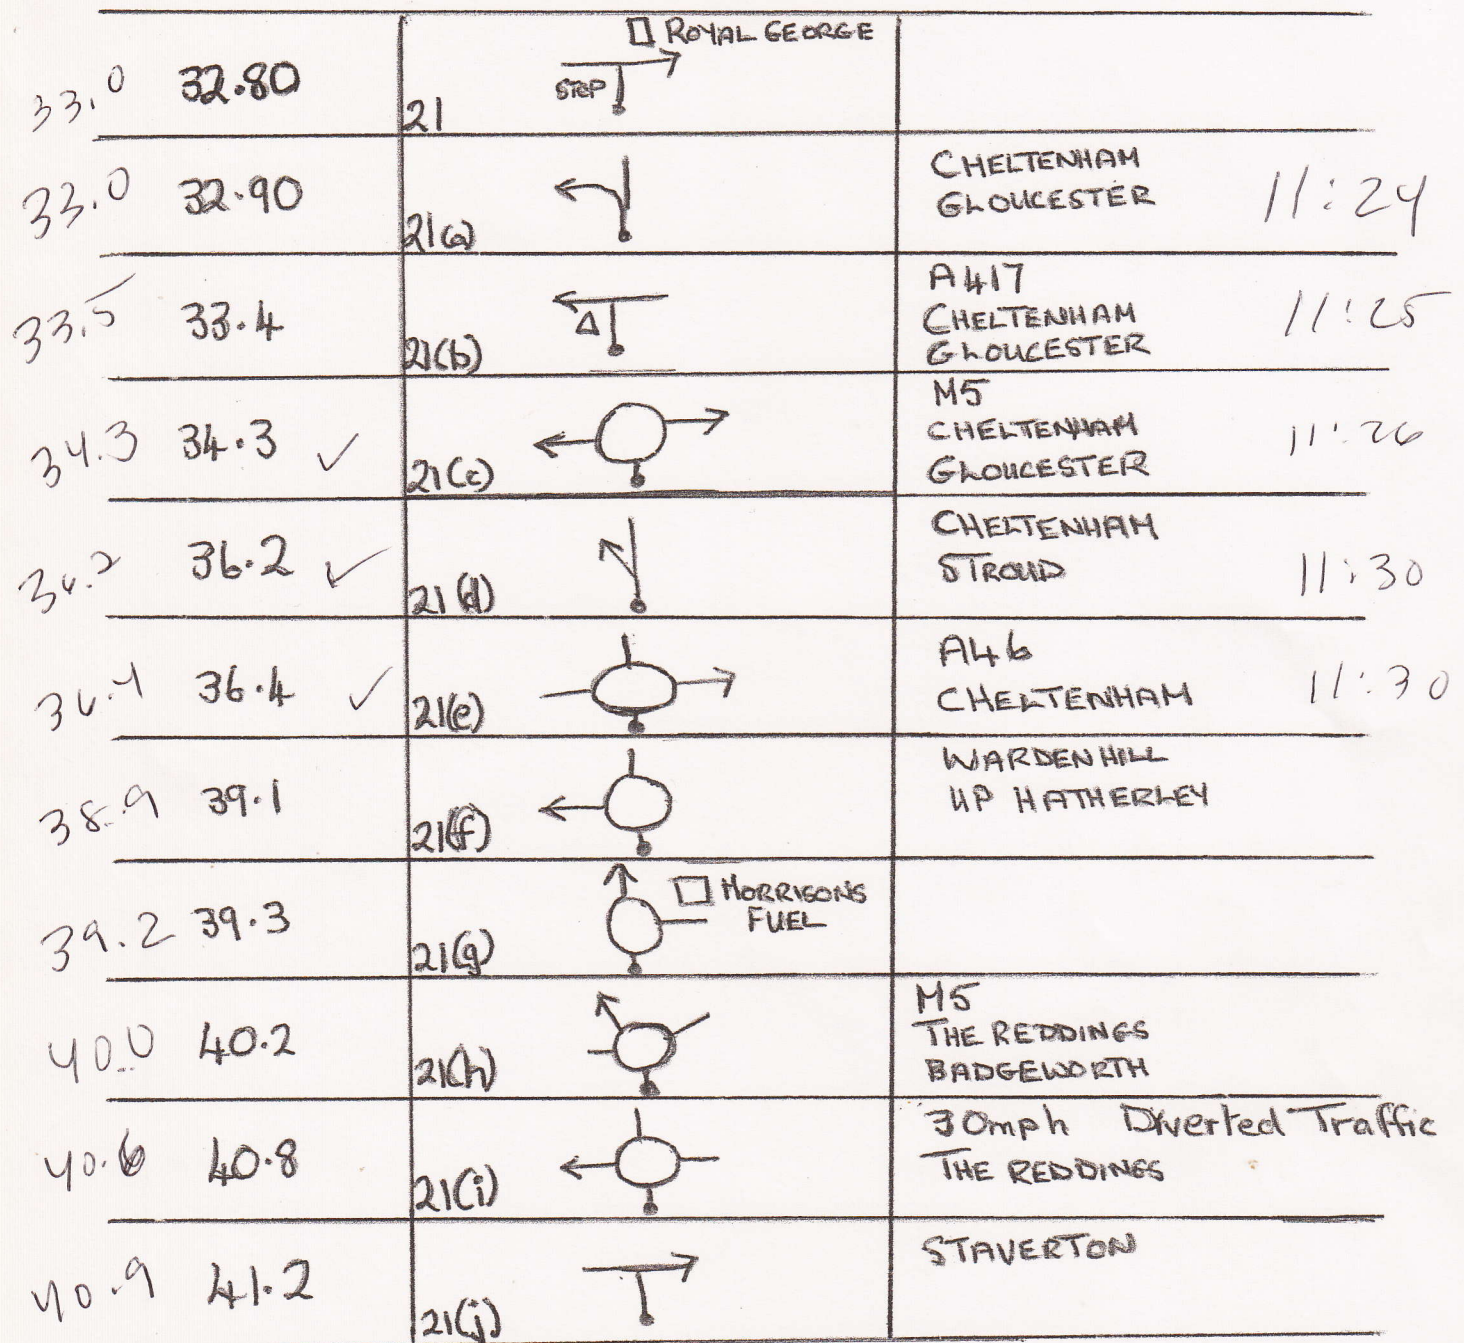 ROYAL GEORGE
33.0 32.80 21 STOP
33.0 32.90 21(a) CHELTENHAM
GLOUCESTER 11:24
33.5 33.4 21(b) A417
CHELTENHAM 11:25
GLOUCESTER
34.3 34.3 ✓ 21(c) M5
CHELTENHAM 11:26
GLOUCESTER
36.2 36.2 ✓ 21(d) CHELTENHAM
STROUD 11:30
36.4 36.4 ✓ 21(e) A46
CHELTENHAM 11:30
38.9 39.1 21(f) WARDEN HILL
UP HATHERLEY
39.2 39.3 21(g) MORRISONS
FUEL
40.0 40.2 21(h) M5
THE REDDINGS
BADGEWORTH
40.6 40.8 21(i) 30mph Diverted Traffic
THE REDDINGS
40.9 41.2 21(j) STAVERTON